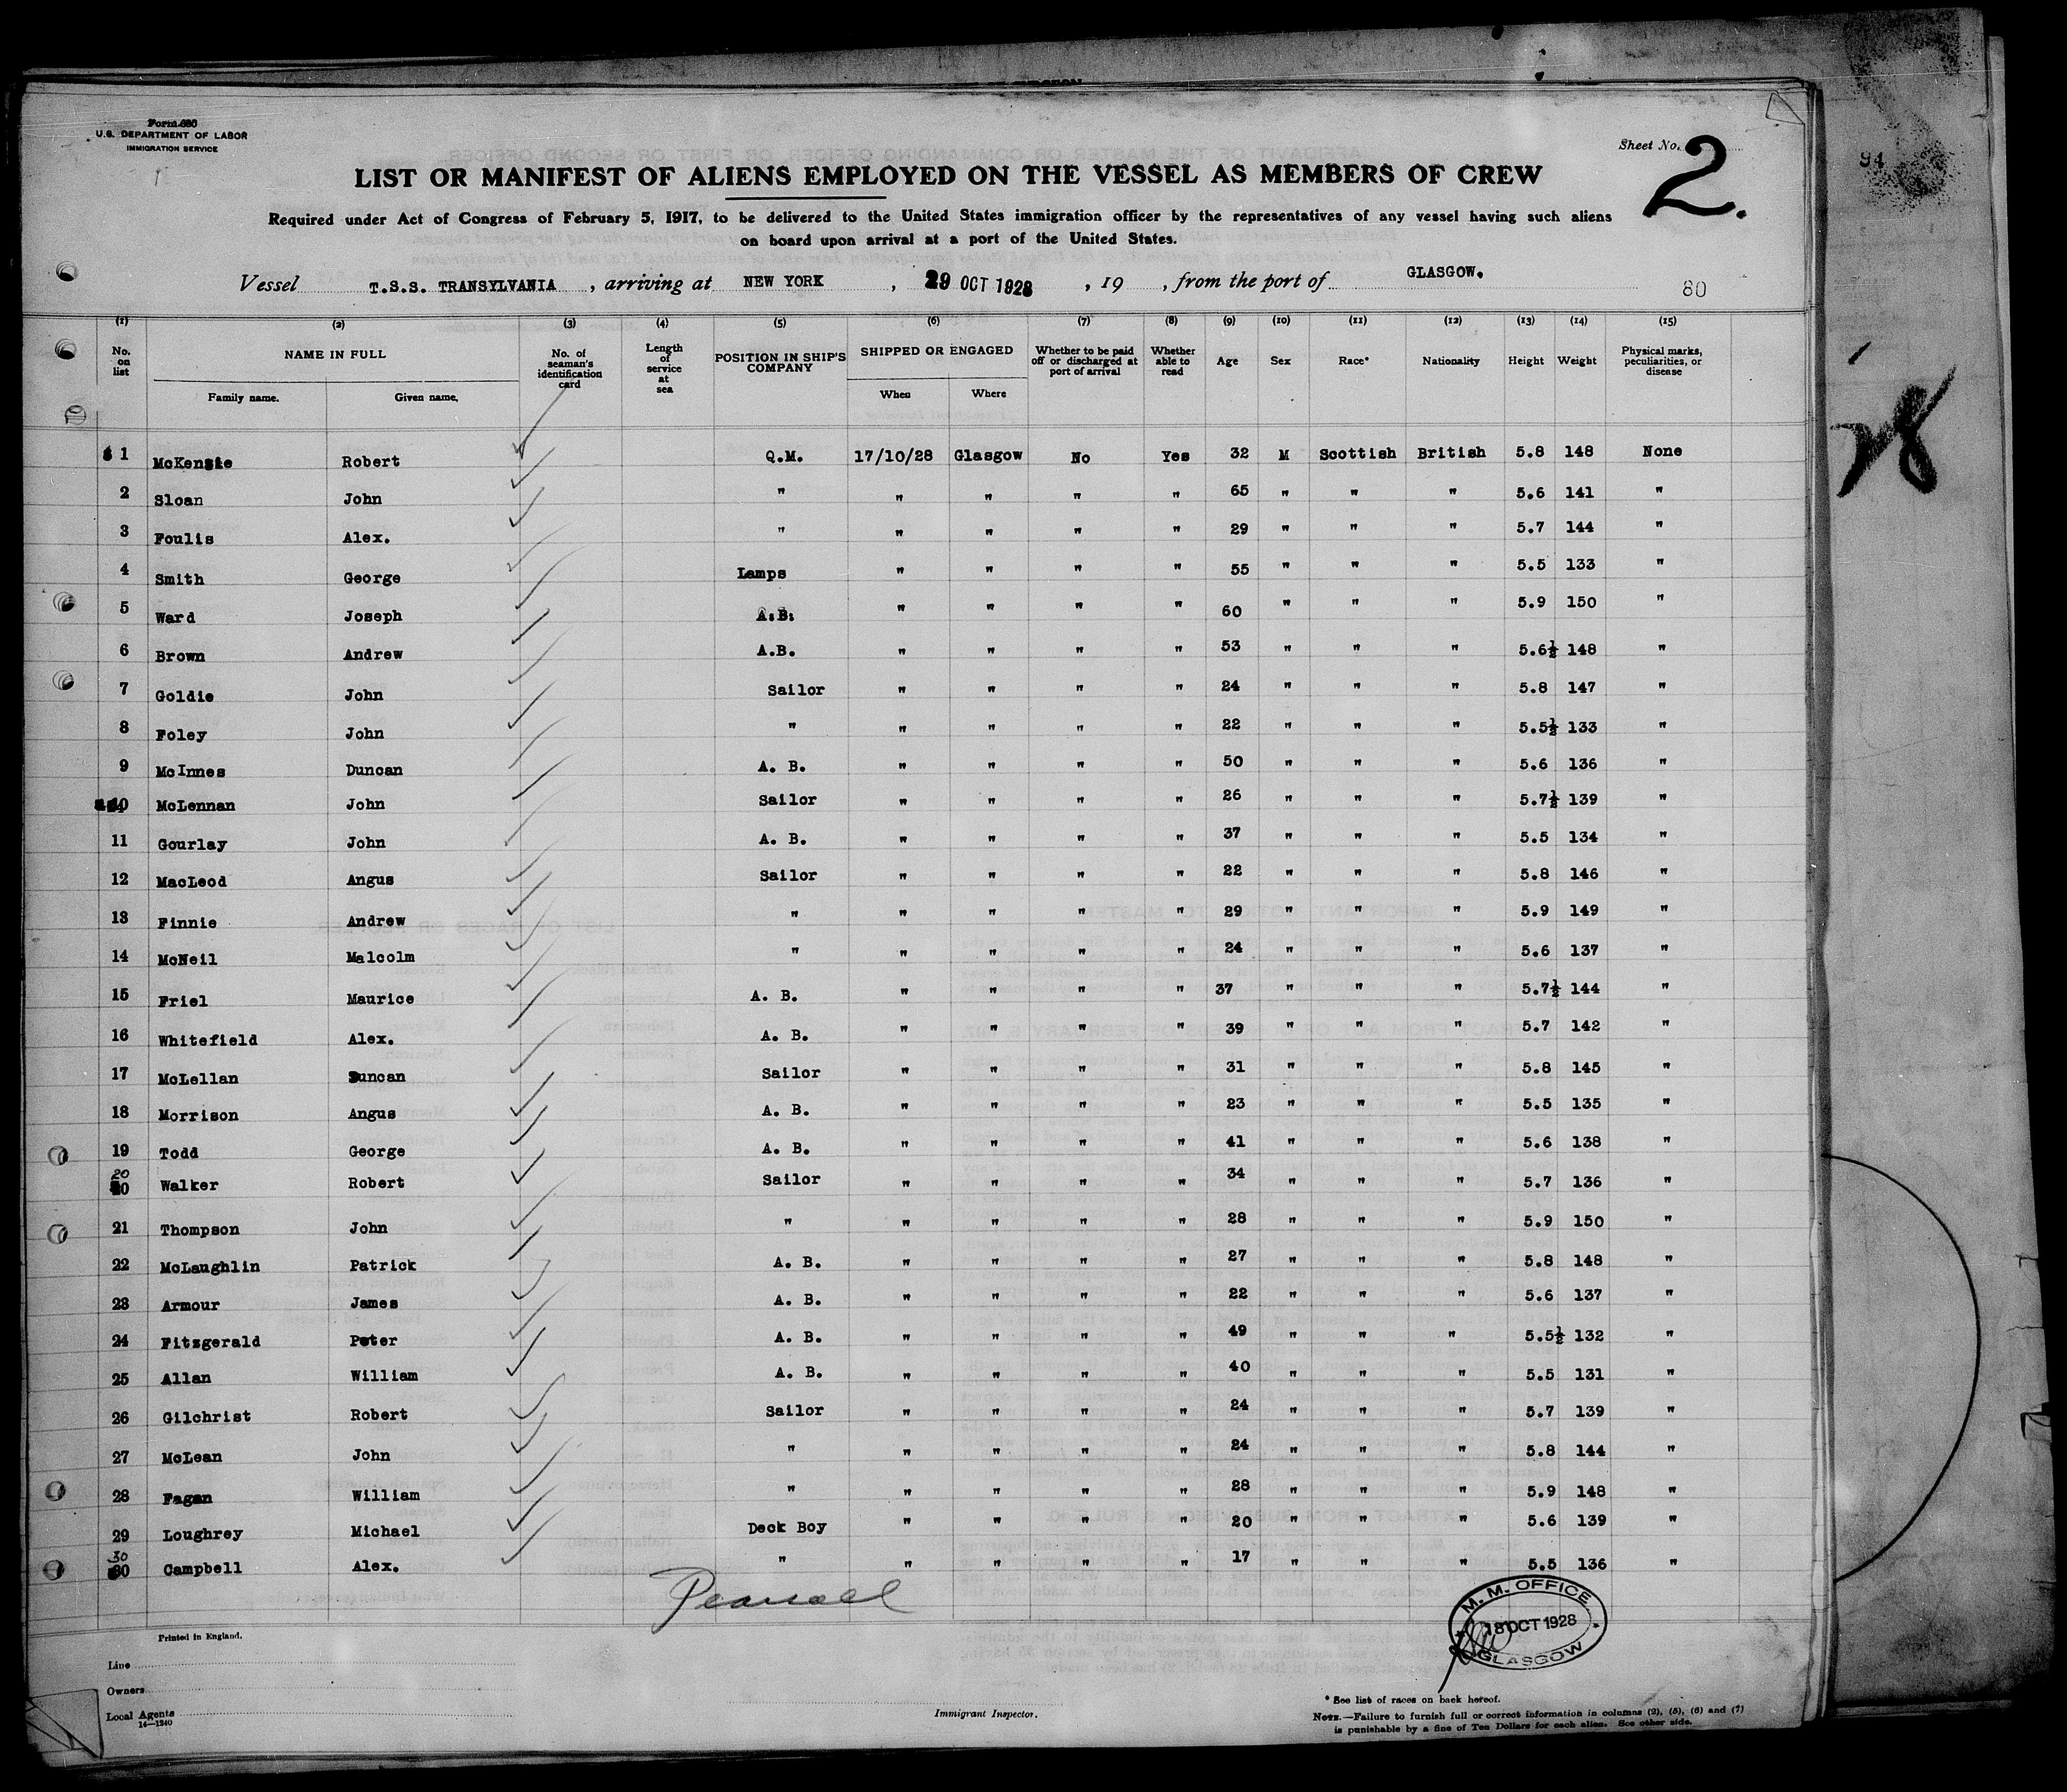 Form 680
U.S. DEPARTMENT OF LABOR
IMMIGRATION SERVICE
Sheet No. 2.
94
LIST OR MANIFEST OF ALIENS EMPLOYED ON THE VESSEL AS MEMBERS OF CREW
Required under Act of Congress of February 5, 1917, to be delivered to the United States immigration officer by the representatives of any vessel having such aliens
on board upon arrival at a port of the United States.
Vessel T.S.S. TRANSYLVANIA , arriving at NEW YORK , 29 OCT 1928 , 19 , from the port of GLASGOW.
80
(1) (2) (3) (4) (5) (6) (7) (8) (9) (10) (11) (12) (13) (14) (15)
No. on list NAME IN FULL Family name. Given name. No. of seaman's identification card Length of service at sea POSITION IN SHIP'S COMPANY SHIPPED OR ENGAGED When Where Whether to be paid off or discharged at port of arrival Whether able to read Age Sex Race* Nationality Height Weight Physical marks, peculiarities, or disease
1 McKensie Robert Q.M. 17/10/28 Glasgow No Yes 32 M Scottish British 5.8 148 None
2 Sloan John " " " " " 65 " " " 5.6 141 "
3 Foulis Alex. " " " " " 29 " " " 5.7 144 "
4 Smith George Lamps " " " " 55 " " " 5.5 133 "
5 Ward Joseph A.B. " " " " 60 " " " 5.9 150 "
6 Brown Andrew A.B. " " " " 53 " " " 5.6½ 148 "
7 Goldie John Sailor " " " " 24 " " " 5.8 147 "
8 Foley John " " " " " 22 " " " 5.5½ 133 "
9 McInnes Duncan A. B. " " " " 50 " " " 5.6 136 "
10 McLennan John Sailor " " " " 26 " " " 5.7½ 139 "
11 Gourlay John A. B. " " " " 37 " " " 5.5 134 "
12 MacLeod Angus Sailor " " " " 22 " " " 5.8 146 "
13 Finnie Andrew " " " " " 29 " " " 5.9 149 "
14 McNeil Malcolm " " " " " 24 " " " 5.6 137 "
15 Friel Maurice A. B. " " " " 37 " " " 5.7½ 144 "
16 Whitefield Alex. A. B. " " " " 39 " " " 5.7 142 "
17 McLellan Duncan Sailor " " " " 31 " " " 5.8 145 "
18 Morrison Angus A. B. " " " " 23 " " " 5.5 135 "
19 Todd George A. B. " " " " 41 " " " 5.6 138 "
20 Walker Robert Sailor " " " " 34 " " " 5.7 136 "
21 Thompson John " " " " " 28 " " " 5.9 150 "
22 McLaughlin Patrick A. B. " " " " 27 " " " 5.8 148 "
23 Armour James A. B. " " " " 22 " " " 5.6 137 "
24 Fitzgerald Peter A. B. " " " " 49 " " " 5.5½ 132 "
25 Allan William A. B. " " " " 40 " " " 5.5 131 "
26 Gilchrist Robert Sailor " " " " 24 " " " 5.7 139 "
27 McLean John " " " " " 24 " " " 5.8 144 "
28 Fagan William " " " " " 28 " " " 5.9 148 "
29 Loughrey Michael Deck Boy " " " " 20 " " " 5.6 139 "
30 Campbell Alex. " " " " " 17 " " " 5.5 136 "
28
M. M. OFFICE
18 OCT 1928
GLASGOW
Printed in England.
Line
Owners
Local Agents
14—1240
Immigrant Inspector.
* See list of races on back hereof.
NOTE.—Failure to furnish full or correct information in columns (2), (5), (6) and (7)
is punishable by a fine of Ten Dollars for each alien. See other side.